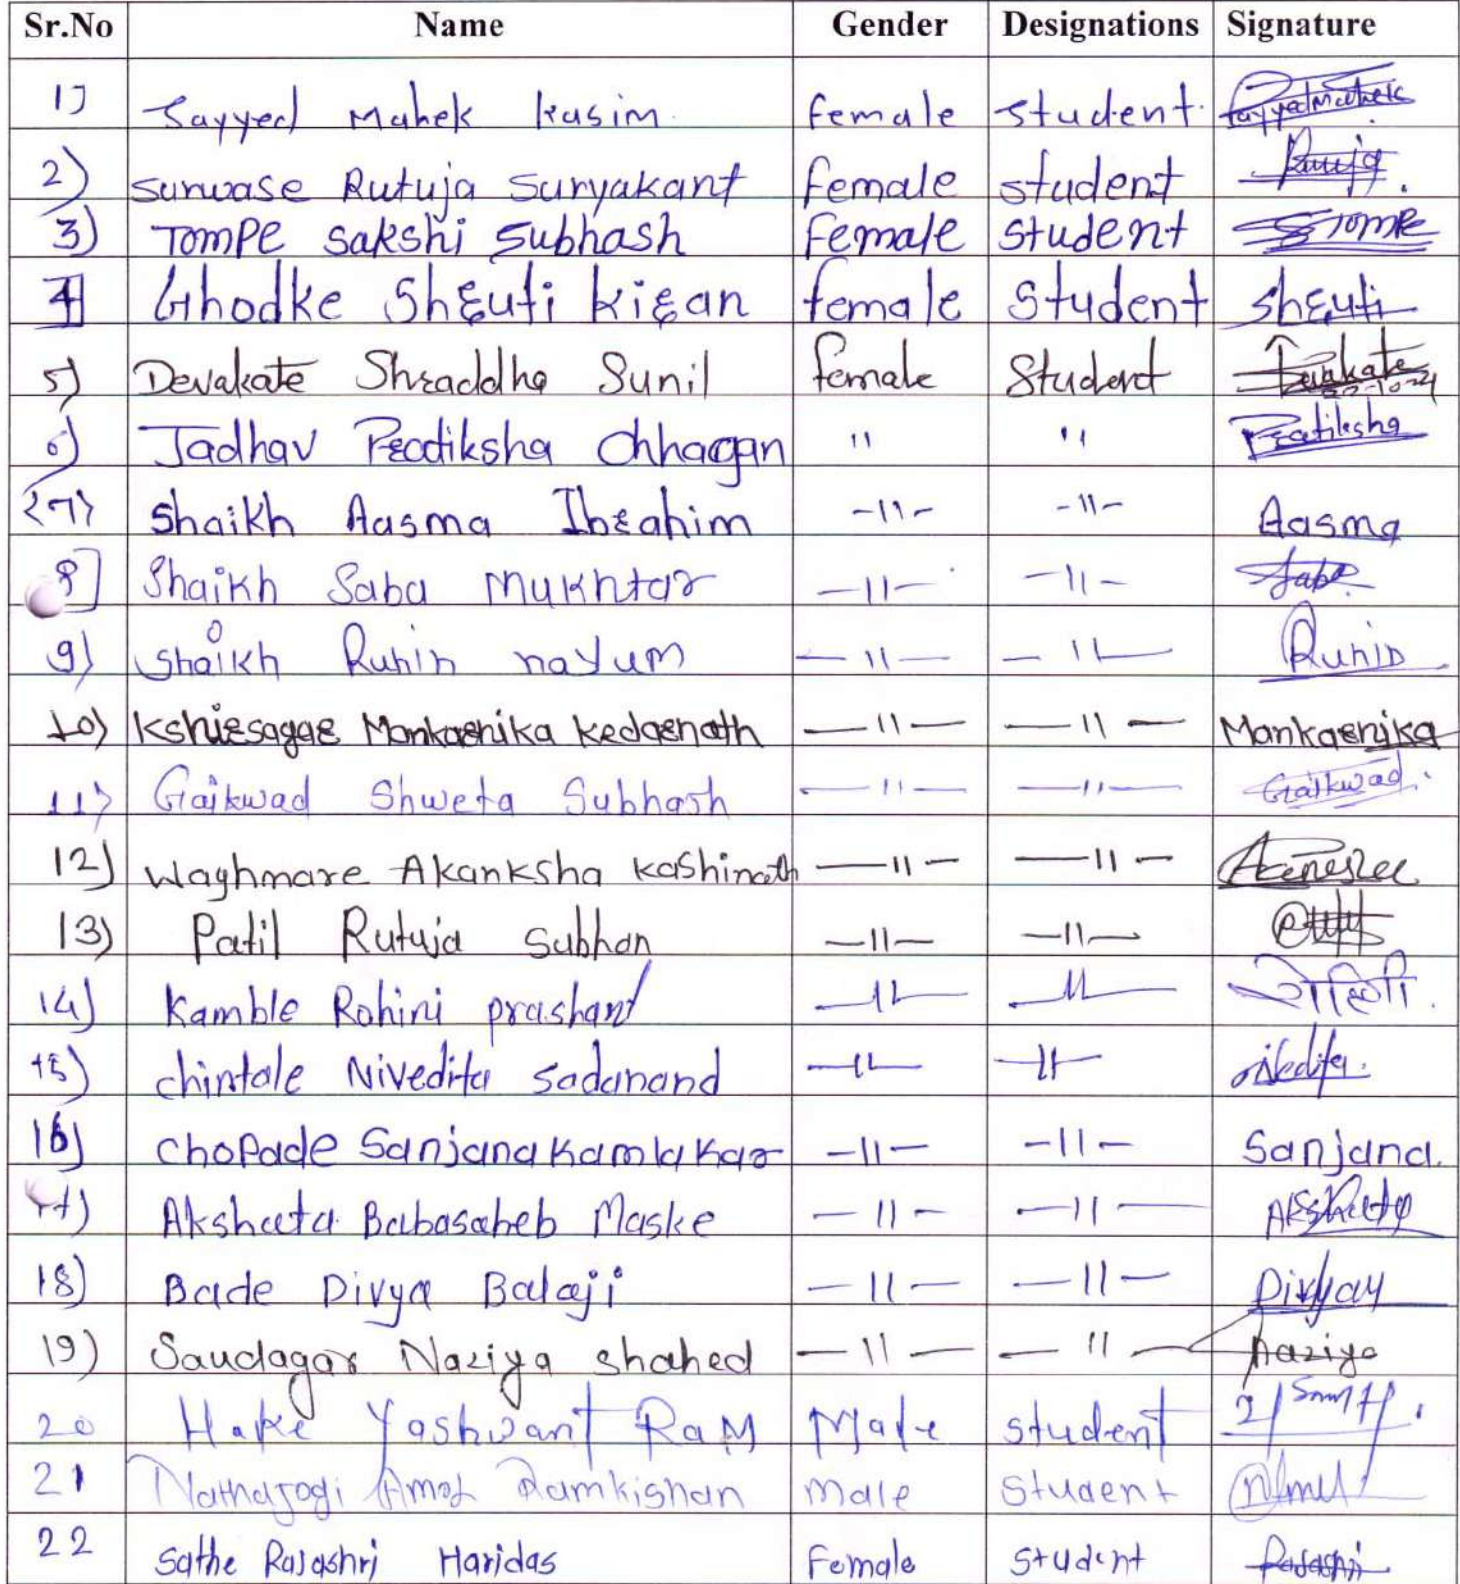 Sr.No Name Gender Designations Signature
1) Sayyed Mahek kasim. female student. SayyedMahek
2) surwase Rutuja Suryakant female student Rutuja
3) TOMPE sakshi subhash female student STOMPE
4 Ghodke Shruti kiran female student Shruti
5) Devakate Shraddha Sunil female Student Devakate
6) Jadhav Pratiksha Chhagan " " Pratiksha
<7> Shaikh Aasma Ibrahim -"- -"- Aasma
8] Shaikh Saba Mukhtar -"- -"- Saba
9) Shaikh Ruhin nayum -"- -"- Ruhin
10) Kshirsagar Mankarnika Kedarnath -"- -"- Mankarnika
11> Gaikwad Shweta Subhash -"- -"- Gaikwad.
12) Waghmare Akanksha kashinath -"- -"-
13) Patil Rutuja Subhan -"- -"-
14) Kamble Rohini prashant -"- -"- रोहिणी.
15) chintale Nivedita sadanand -"- -"-
16) Chopade Sanjana Kamlakar -"- -"- Sanjana.
17) Akshata Babasaheb Maske -"- -"- Akshata
18) Bade Divya Balaji -"- -"- Divyay
19) Saudagar Naziya shahed -"- -"- Naziya
20 Hake Yashwant RaM Male student
21 Nathajogi Amol Ramkishan male Student
22 Sathe Rajashri Haridas Female student Rajashri